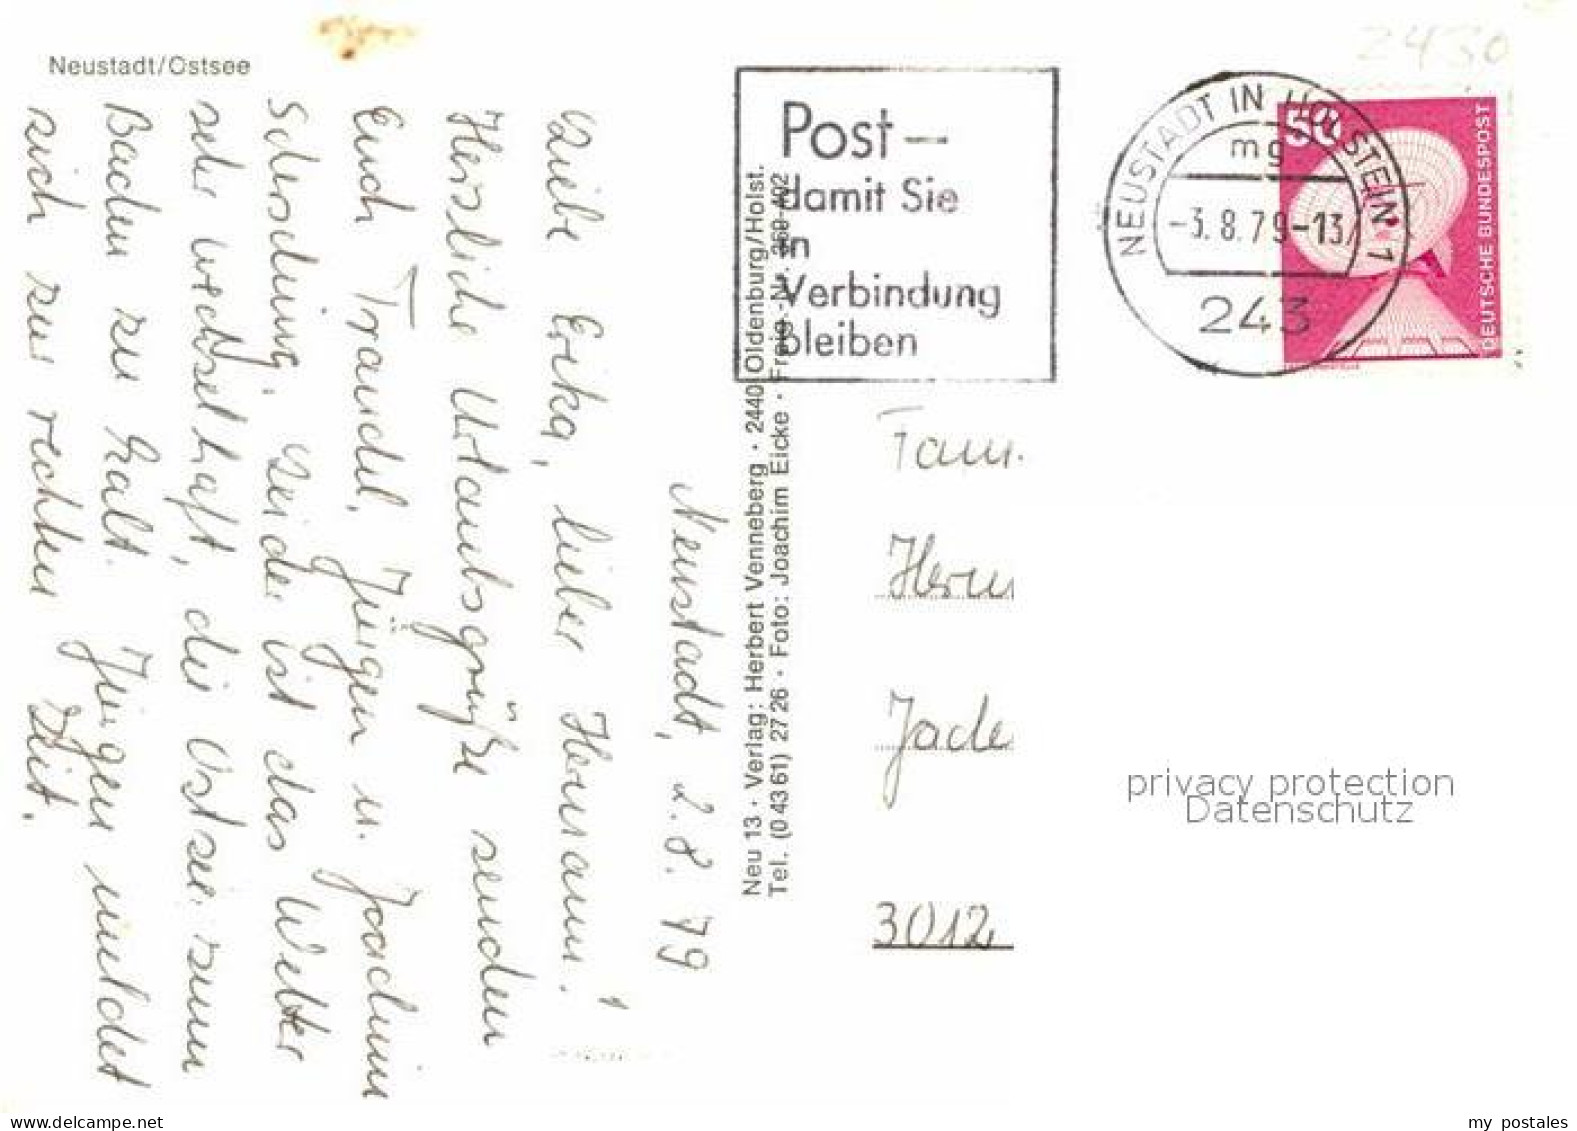 Neustadt/Ostsee
Neustadt, 2.8.79
Liebe Erika, lieber Hermann!
Herzliche Urlaubsgrüße senden
Euch Traudel, Jürgen u. Joachim
Schersching. Leider ist das Wetter
sehr wechselhaft, die Ostsee zum
Baden zu kalt. Jürgen meldet
sich zur rechten Zeit.
Neu 13 · Verlag: Herbert Venneberg · 2440 Oldenburg/Holst.
Tel. (0 43 61) 27 26 · Foto: Joachim Eicke · Freig.-Nr.
Post –
damit Sie
in
Verbindung
bleiben
NEUSTADT IN HOLSTEIN 1
mg
-3.8.79-13
243
50
DEUTSCHE BUNDESPOST
2430
Fam.
Herm
Jade
3012
privacy protection
Datenschutz
my postales
www.delcampe.net